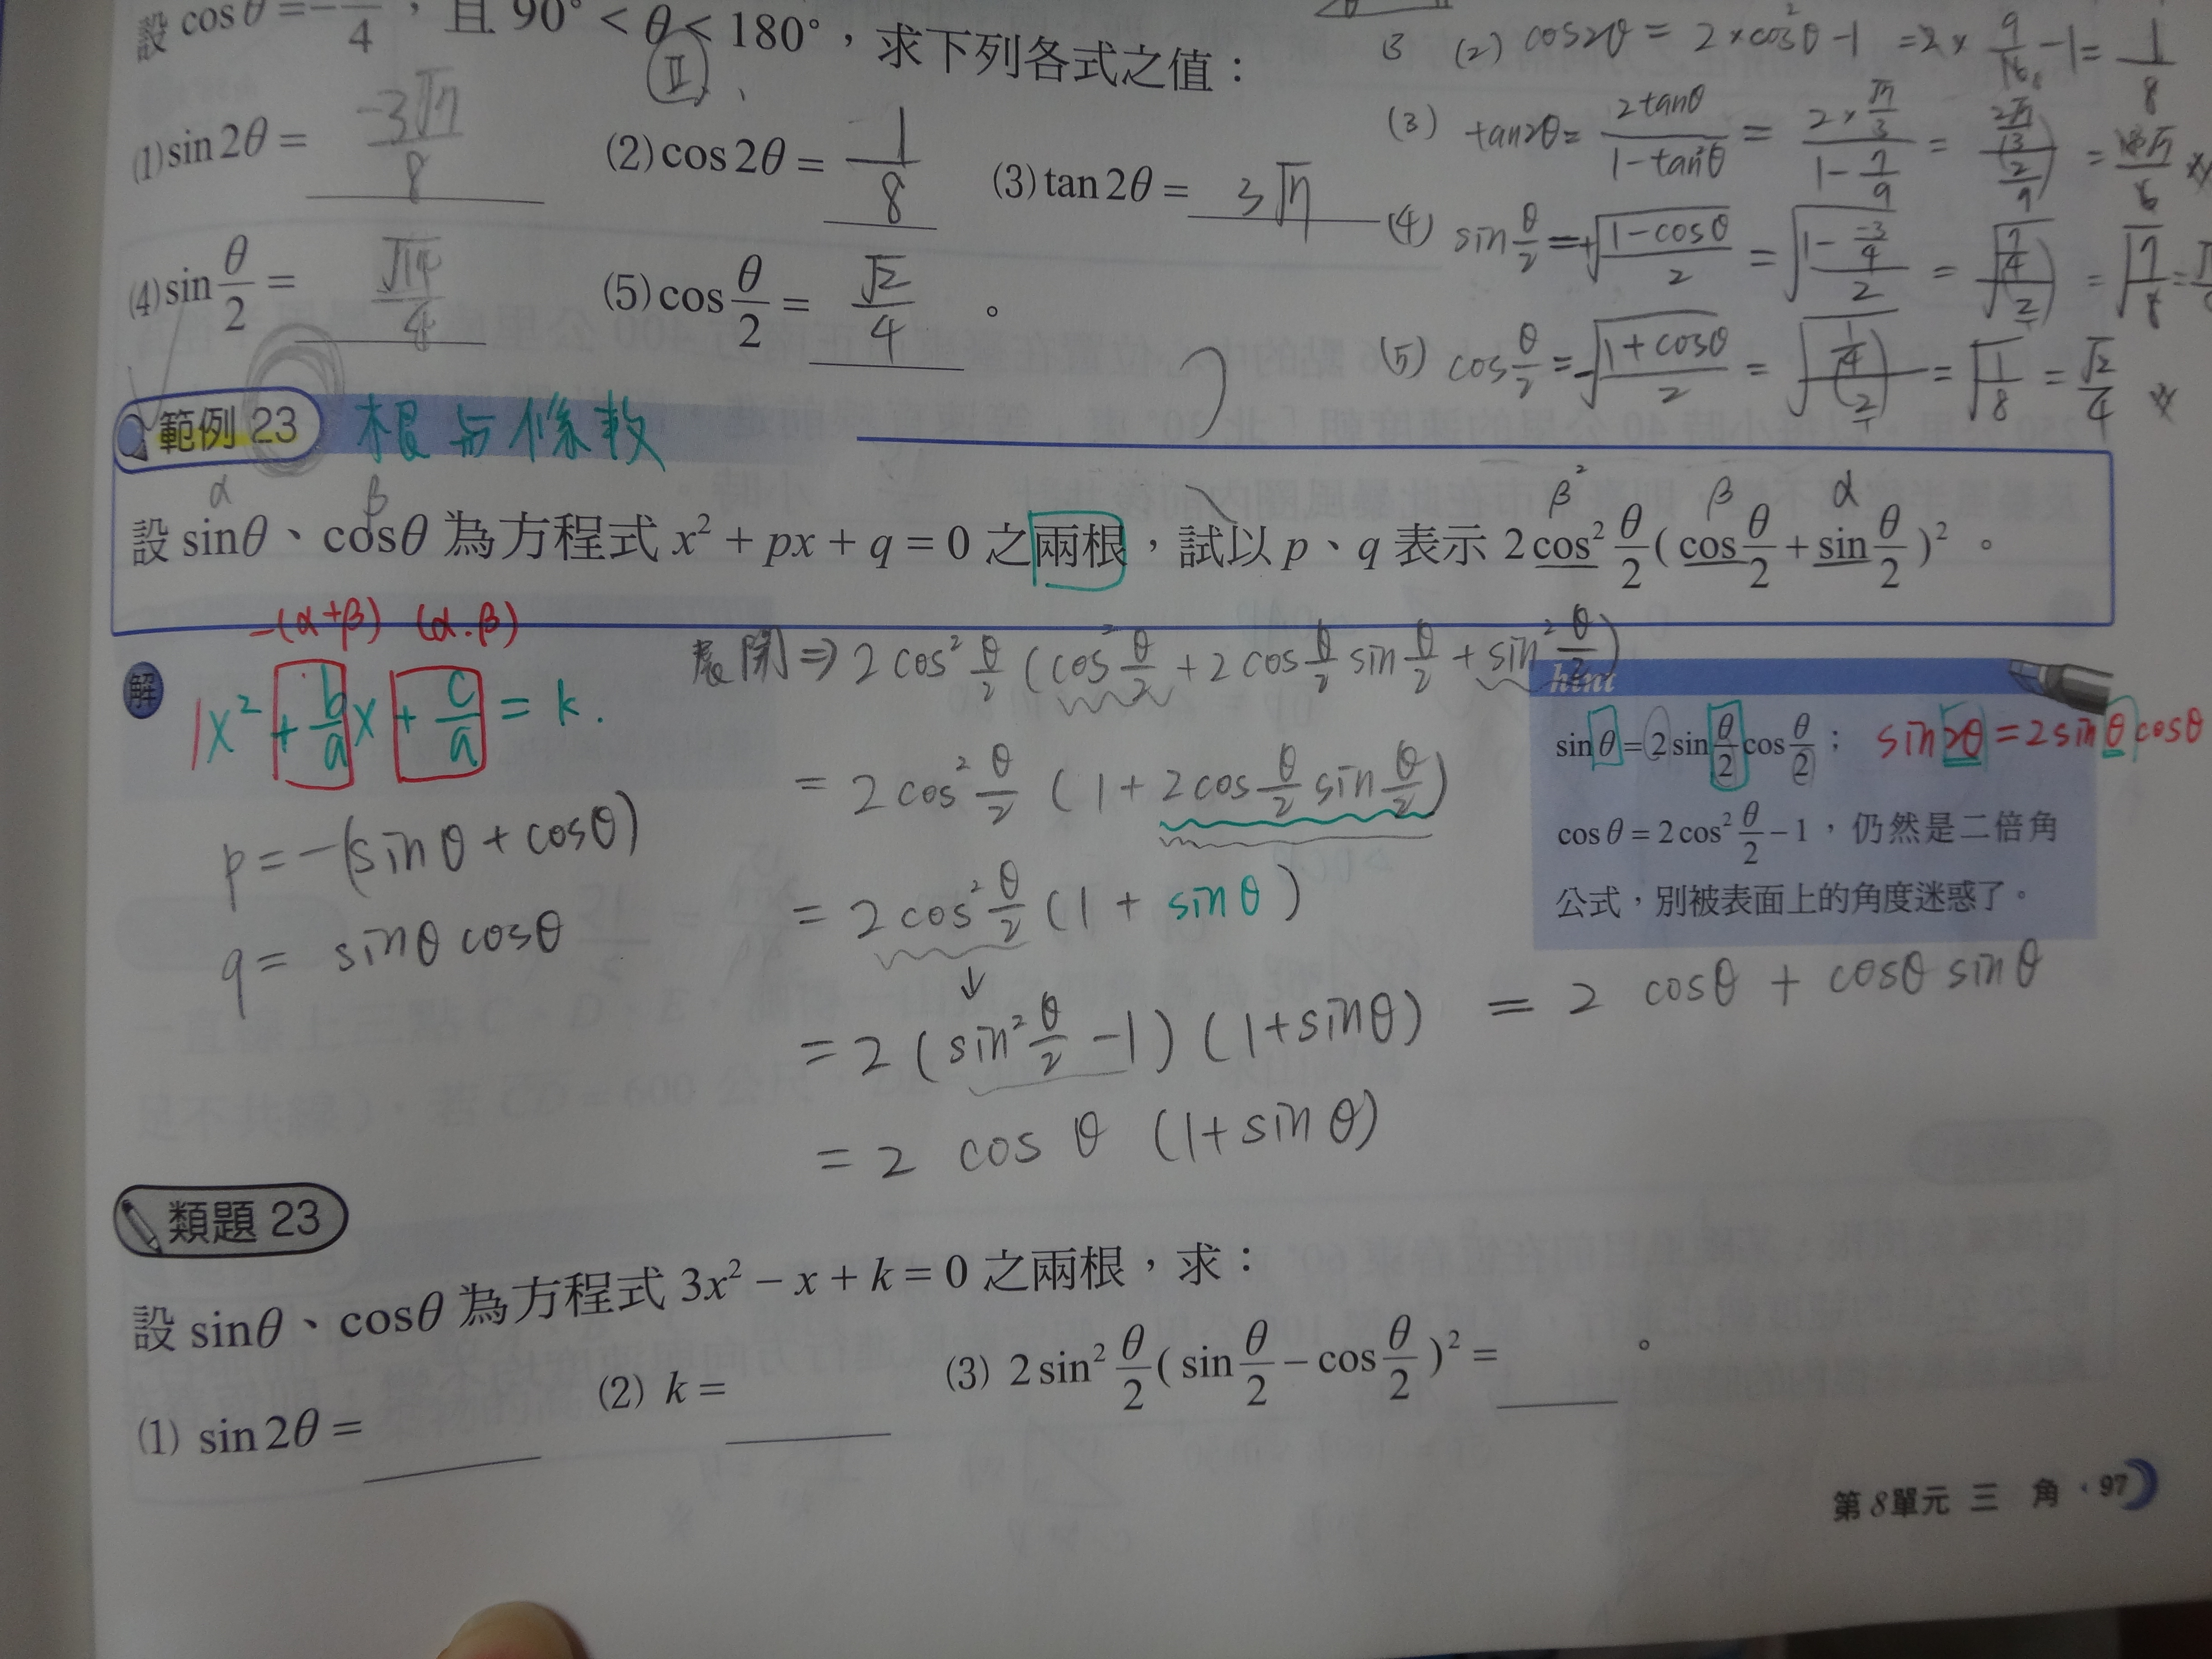 設 cosθ = −—/4，且 90° < θ < 180°，求下列各式之值：
Ⅱ
(1) sin2θ = −3√7/8 (2) cos2θ = 1/8 (3) tan2θ = 3√7
(4) sin θ/2 = √14/4 (5) cos θ/2 = √2/4 。
(2) cos2θ = 2×cos²θ−1 = 2× 9/16 −1 = 1/8
(3) tan2θ = 2tanθ/1−tan²θ = 2×√7/3 / 1−7/9 =
(4) sin θ/2 = +√(1−cosθ/2) = √(1− −3/4 / 2) = √(7/4 / 2) = √(7/8) =
(5) cos θ/2 = √(1+cosθ/2) = √(1/4 / 2) = √(1/8) = √2/4
範例 23 根与係数
α β β² β α
設 sinθ、cosθ 為方程式 x² + px + q = 0 之兩根，試以 p、q 表示 2cos² θ/2 (cos θ/2 + sin θ/2)² 。
−(α+β) (α·β)
解
1x² + b/a x + c/a = k.
p = −(sinθ + cosθ)
q = sinθ cosθ
展開 ⇒ 2cos² θ/2 (cos² θ/2 + 2cos θ/2 sin θ/2 + sin² θ/2)
= 2cos² θ/2 (1 + 2cos θ/2 sin θ/2)
= 2cos² θ/2 (1 + sinθ)
↓
= 2 (sin² θ/2 −1) (1+sinθ)
= 2 cosθ (1+sinθ)
= 2 cosθ + cosθ sinθ
hint
sinθ = 2sin θ/2 cos θ/2；
sin2θ = 2sinθ cosθ
cosθ = 2cos² θ/2 −1，仍然是二倍角
公式，別被表面上的角度迷惑了。
類題 23
設 sinθ、cosθ 為方程式 3x² − x + k = 0 之兩根，求：
(1) sin2θ = (2) k = (3) 2sin² θ/2 (sin θ/2 − cos θ/2)² = 。
第8單元 三 角．97